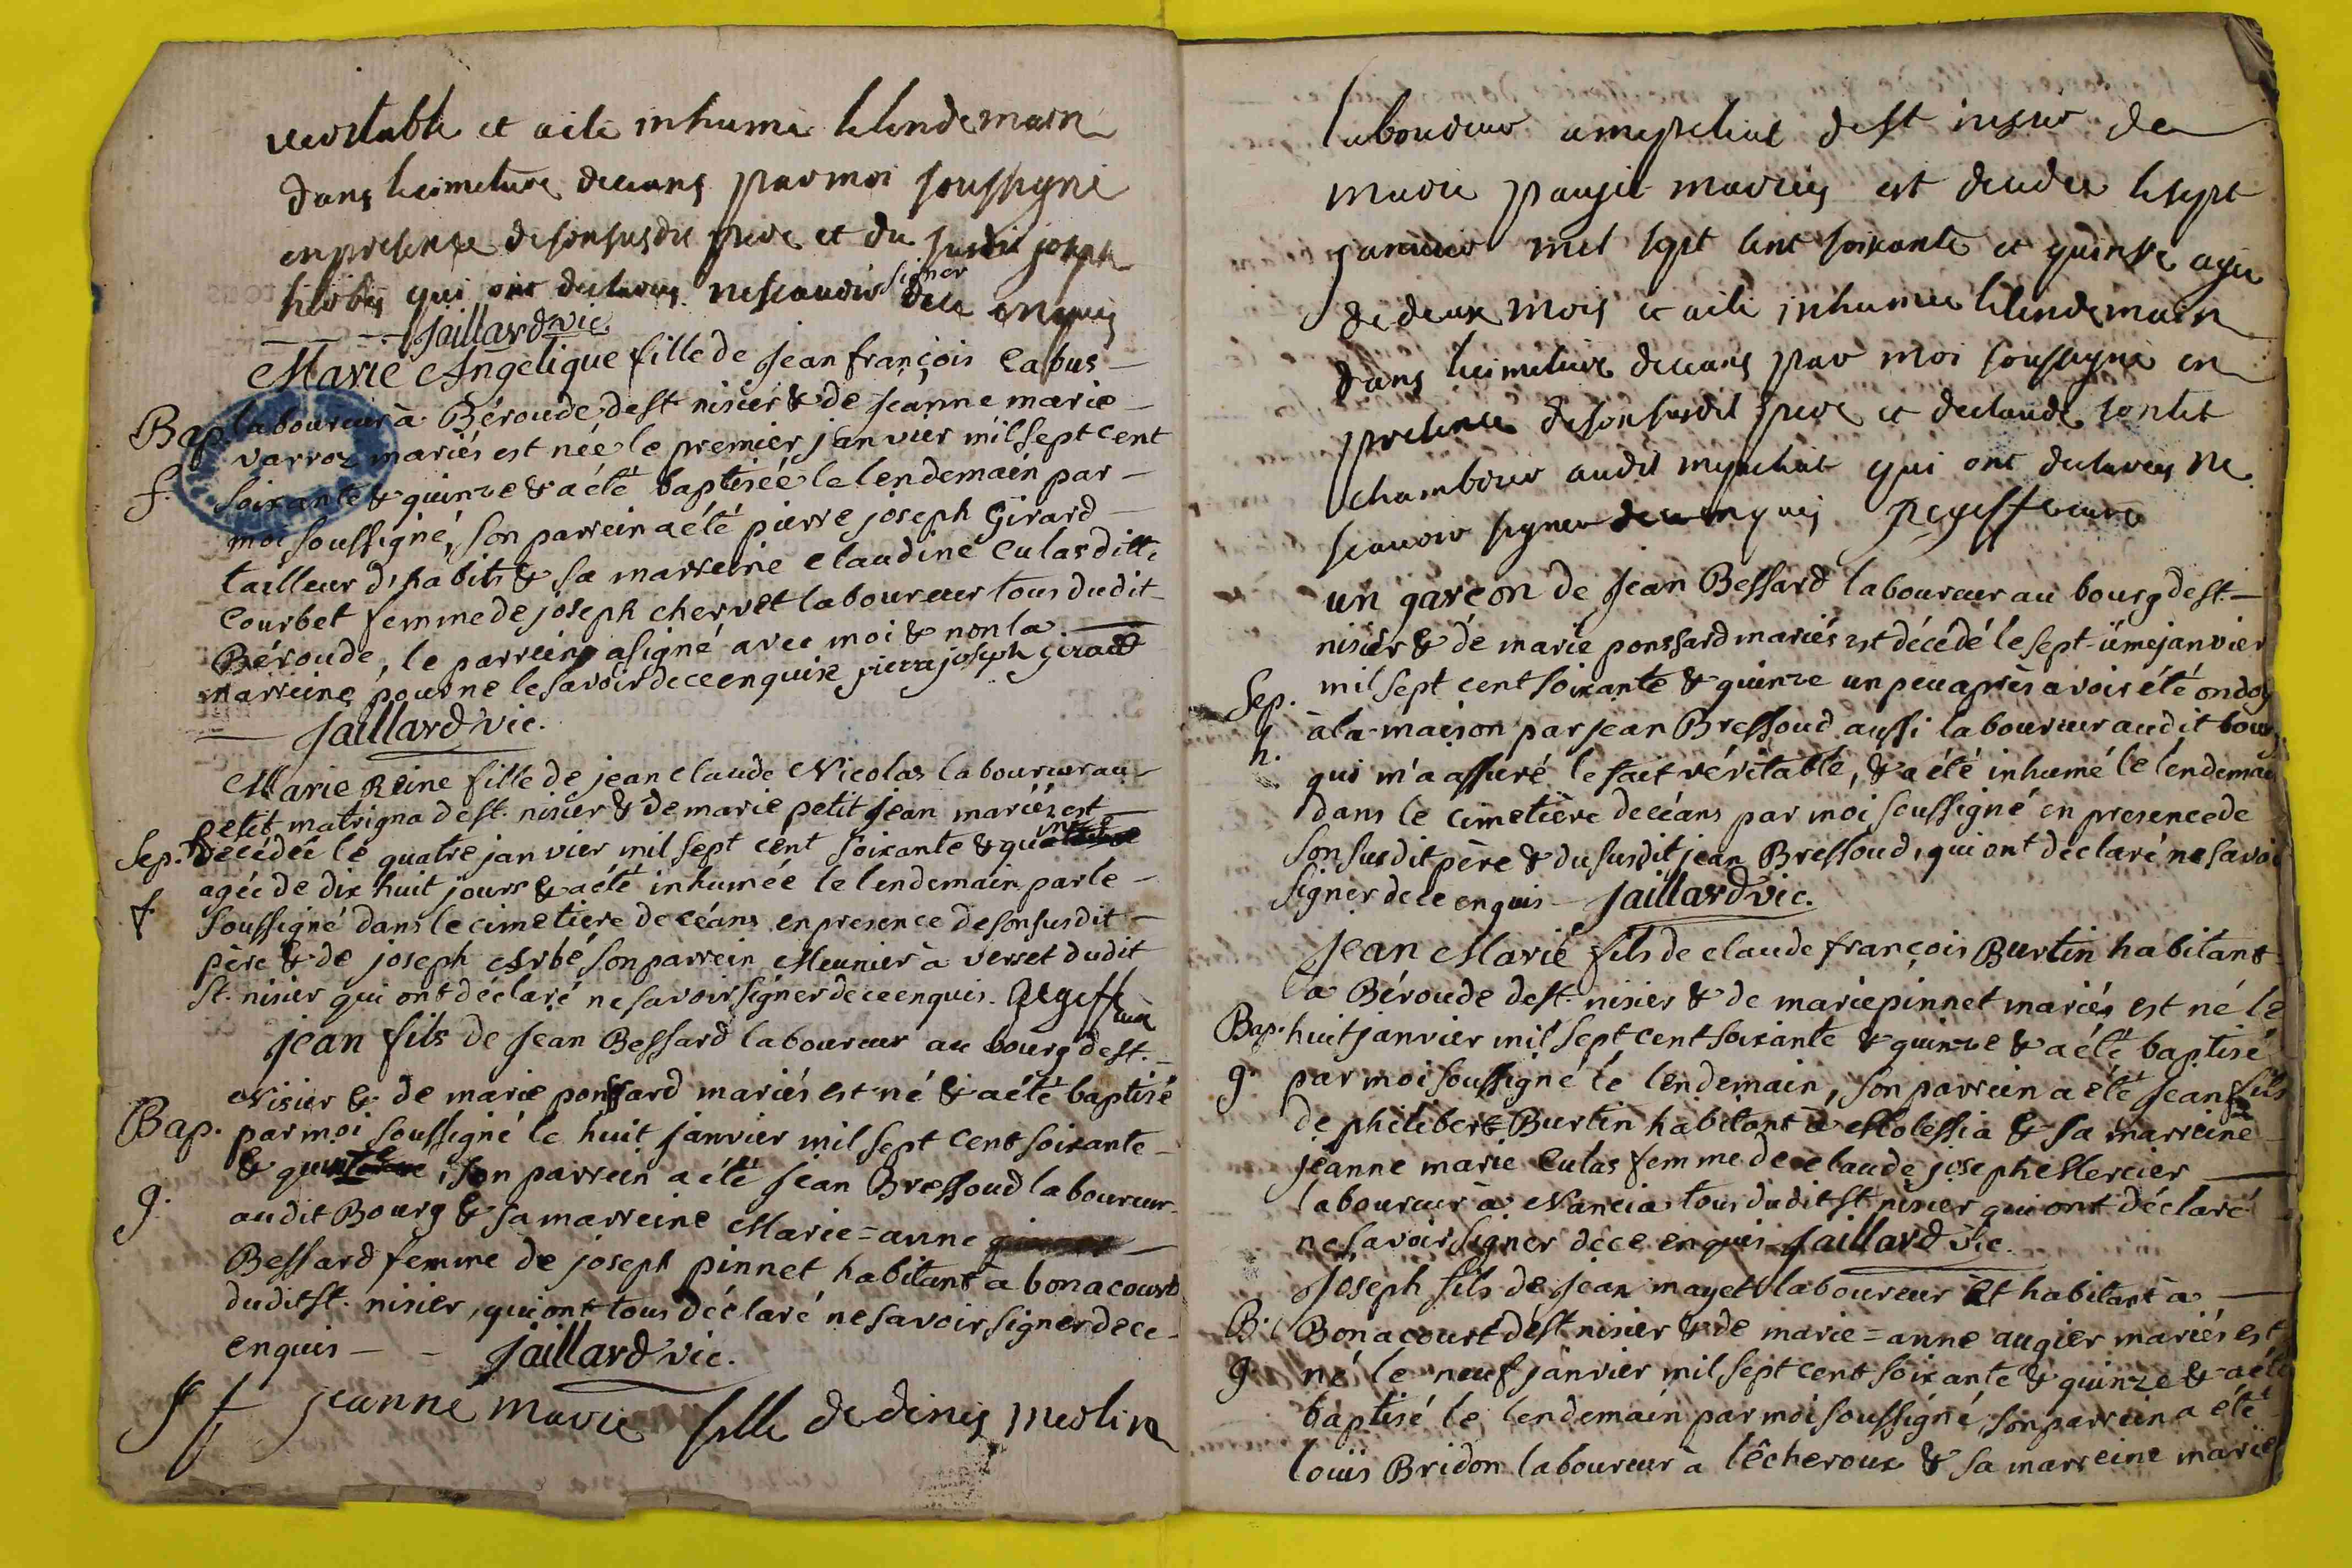 veritable et a été inhumé le lendemain
dans le cimetiere de ceans par moi soussigné
en presence de son susdit pere et du susdit joseph
qui ont declarés ne scavoir signer de ce enquis
Jaillard vic.
Marie Angelique fille de Jean françois Cabus
Bap. laboureur à Béroude de st nisier & de Jeanne marie
varroz mariés est née le premier janvier mil sept cent
f. soixante & quinze & a été baptisée le lendemain par
moi soussigné, son parrein a été pierre joseph Girard
tailleur d'habits & sa marreine claudine Culas ditte
Courbet femme de joseph chervet laboureur tous dudit
Béroude, le parrein a signé avec moi & non la
marreine pour ne le savoir de ce enquise pierre joseph girard
Jaillard vic.
Marie Reine fille de jean claude Nicolas laboureur au
petit matrigna de st. nisier & de marie petit jean mariés est
Sep. décédée le quatre janvier mil sept cent soixante & quinze
agée de dix huit jours & a été inhumée le lendemain par le
f soussigné dans le cimetiere de céans en presence de son susdit
père & de joseph Arbé son parrein Meunier à verset dudit
St. nisier qui ont déclaré ne savoir signer de ce enquis.
jean fils de Jean Bessard laboureur au bourg de st.
Nisier & de marie ponssard mariés est né & a été baptisé
Bap. par moi soussigné le huit janvier mil sept cent soixante
& quinze, son parrein a été Jean Bressoud laboureur
g. audit Bourg & sa marreine Marie=anne
Bessard femme de joseph pinnet habitant à bonacourt
dudit st. nisier, qui ont tous déclaré ne savoir signer de ce
enquis - - Jaillard vic.
S f jeanne marie fille de denis merlin
laboureur a de st nisier de
marie mariés est decedee le sept
janvier mil sept cent soixante et quinze agée
de deux mois et a été inhumée le lendemain
dans le cimetiere de ceans par moi soussigné en
presence de son susdit pere et de claude
audit qui ont declarés ne
scavoir signer de ce enquis
un garçon de Jean Bessard laboureur au bourg de st.
nisier & de marie ponssard mariés est décédé le sept-ième janvier
Sep. mil sept cent soixante & quinze un peu après avoir été ondoy
à la maison par jean Bressoud aussi laboureur audit bourg
h. qui m'a assuré le fait véritable, & a été inhumé le lendemain
dans le cimetière de céans par moi soussigné en presence de
son susdit père & du susdit jean Bressoud, qui ont déclaré ne savoir
signer de ce enquis - Jaillard vic.
Jean Marie fils de claude françois Burtin habitant
à Béroude de st. nisier & de marie pinnet mariés est né le
Bap. huit janvier mil sept cent soixante & quinze & a été baptisé
g. par moi soussigné le lendemain, son parrein a été Jean fils
de philibert Burtin habitant à Molessia & sa marreine
jeanne marie Culas femme de claude joseph Mercier
laboureur à Nancia tous dudit st nisier qui ont déclaré
ne savoir signer de ce enquis Jaillard vic.
Joseph fils de Jean mayet laboureur et habitant à
B. Bonacourt de st nisier & de marie=anne augier mariés est
g. né le neuf janvier mil sept cent soixante & quinze & a été
baptisé le lendemain par moi soussigné, son parrein a été
louïs Bridon laboureur à lêcheroux & sa marreine marie